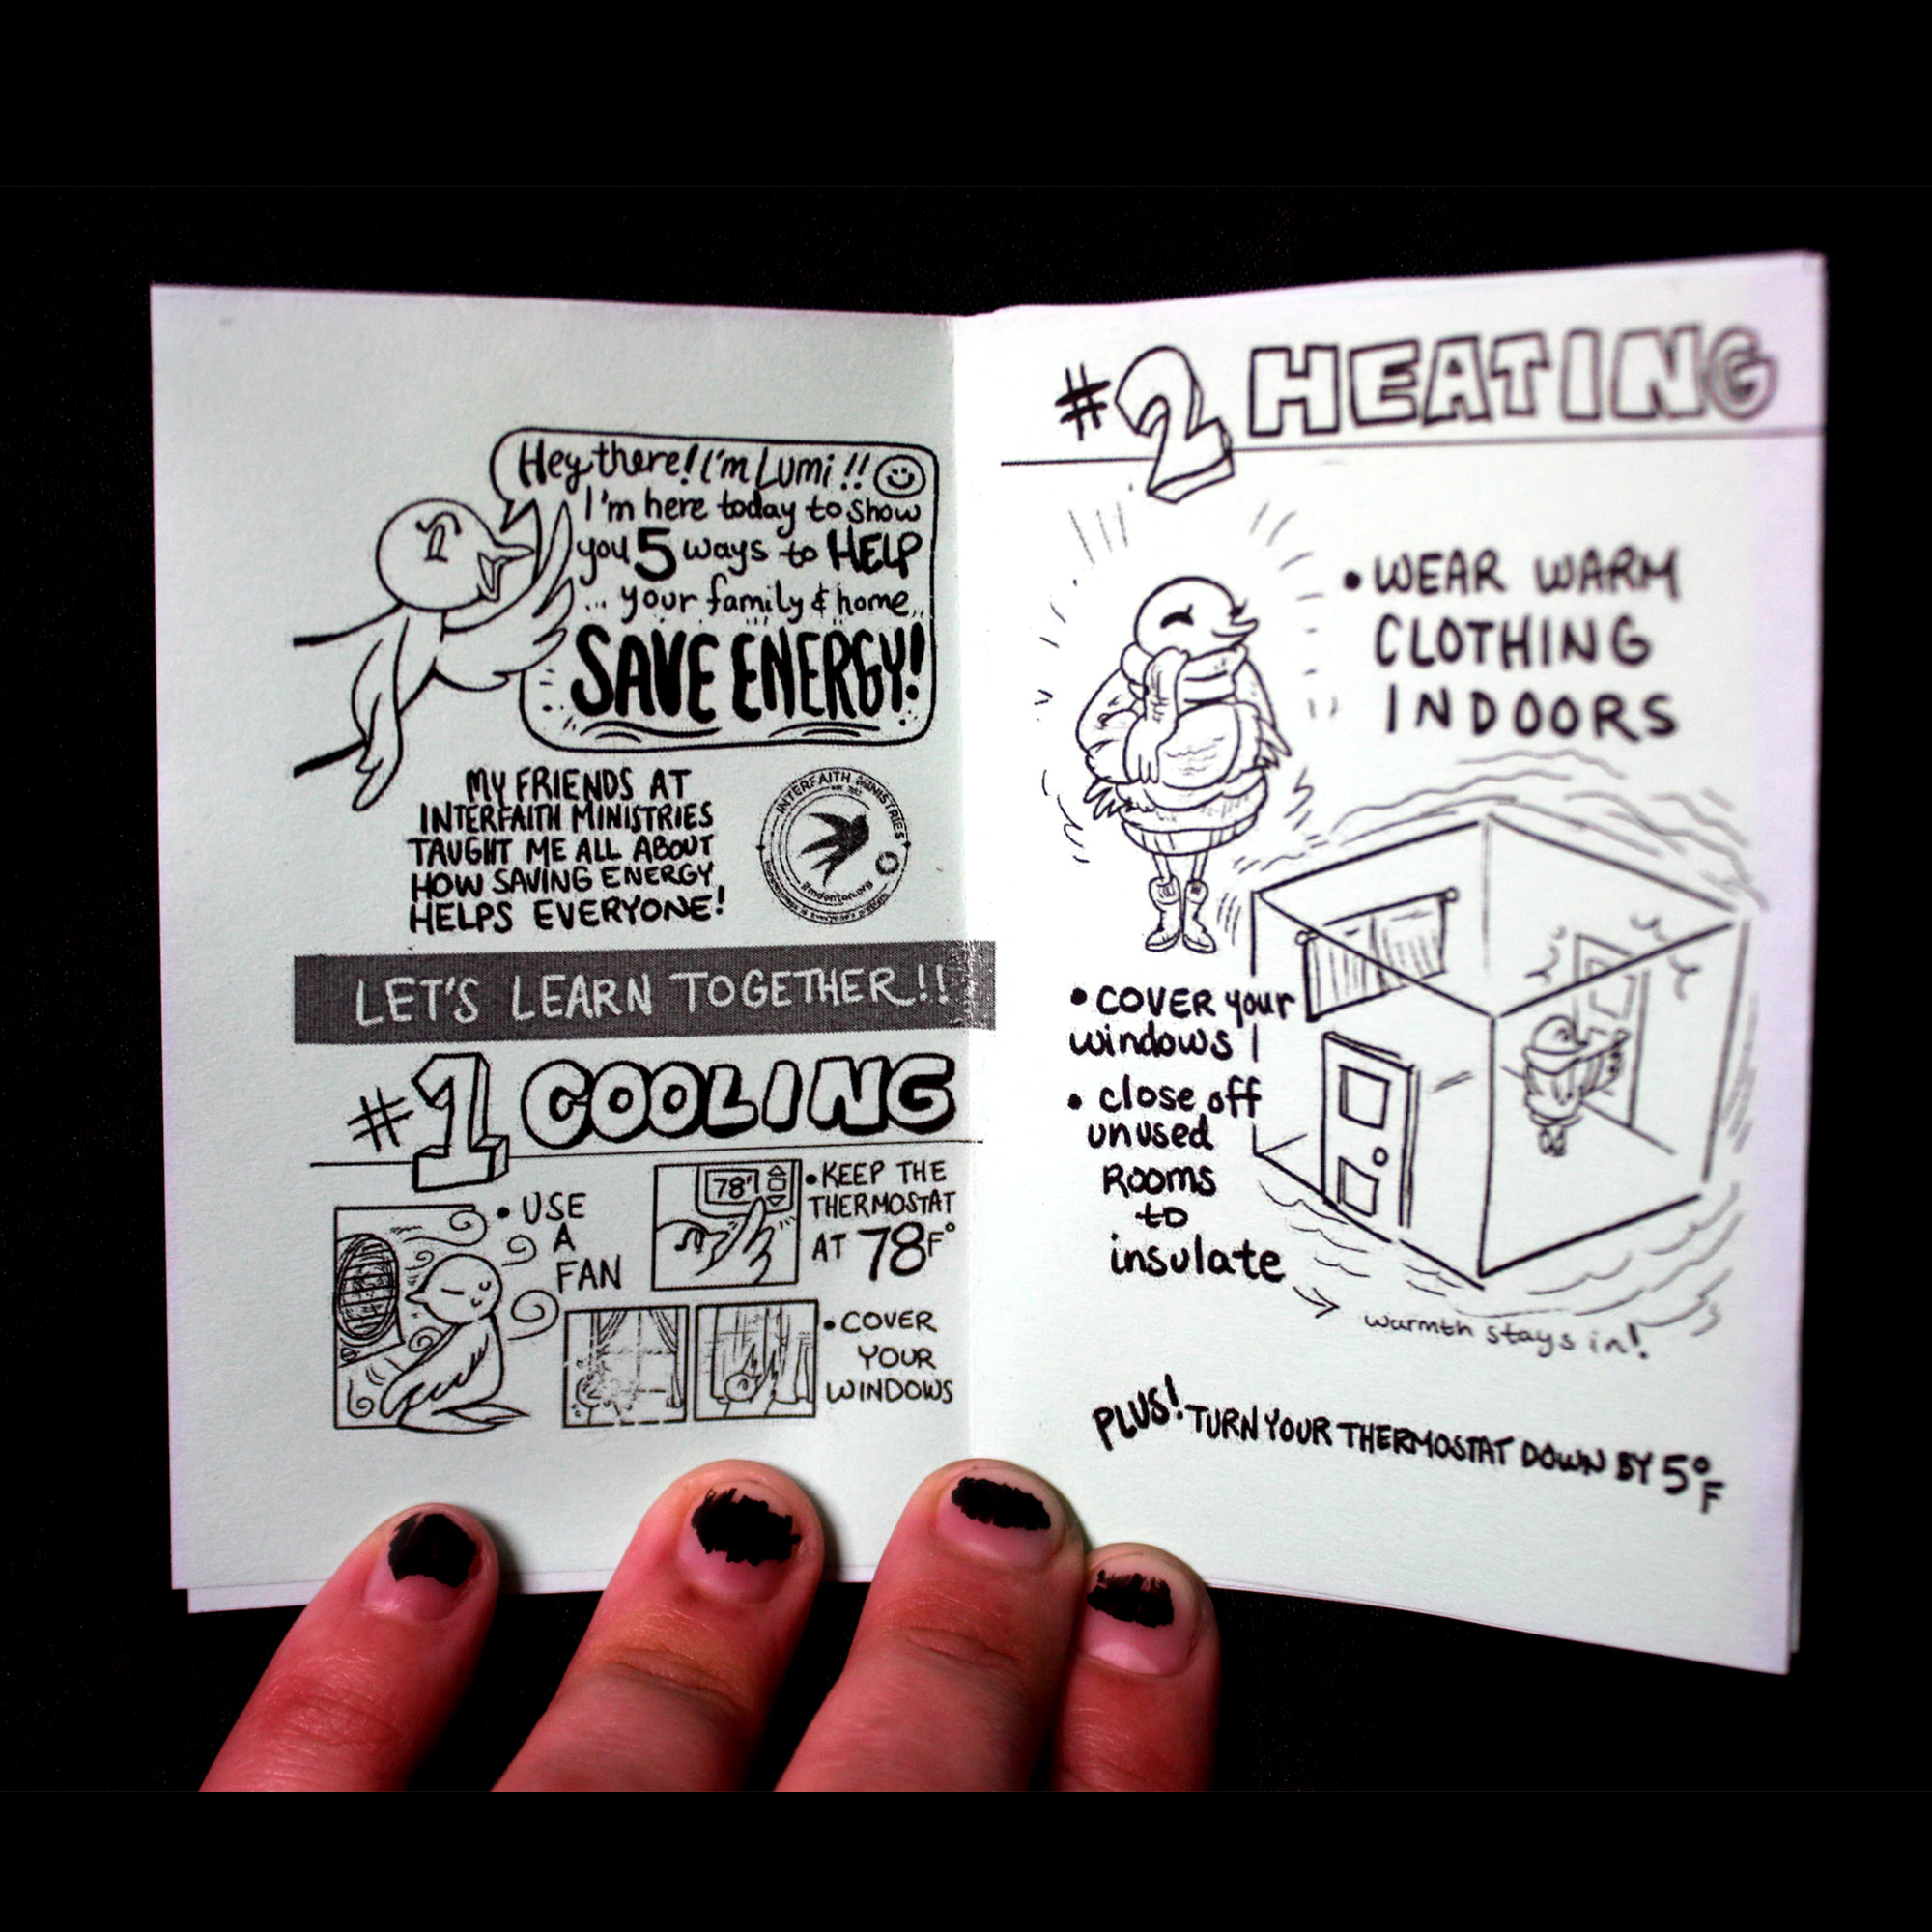 Hey there! I'm Lumi!!
I'm here today to show
you 5 ways to HELP
... your family & home..
SAVE ENERGY!
MY FRIENDS AT
INTERFAITH MINISTRIES
TAUGHT ME ALL ABOUT
HOW SAVING ENERGY
HELPS EVERYONE!
INTERFAITH MINISTRIES
ifmdenton.org
LET'S LEARN TOGETHER!!
#1 COOLING
• USE
A
FAN
78°
• KEEP THE
THERMOSTAT
AT 78F°
• COVER
YOUR
WINDOWS
#2 HEATING
• WEAR WARM
CLOTHING
INDOORS
• COVER your
windows
• close off
unused
Rooms
to
insulate
warmth stays in!
PLUS! TURN YOUR THERMOSTAT DOWN BY 5°F